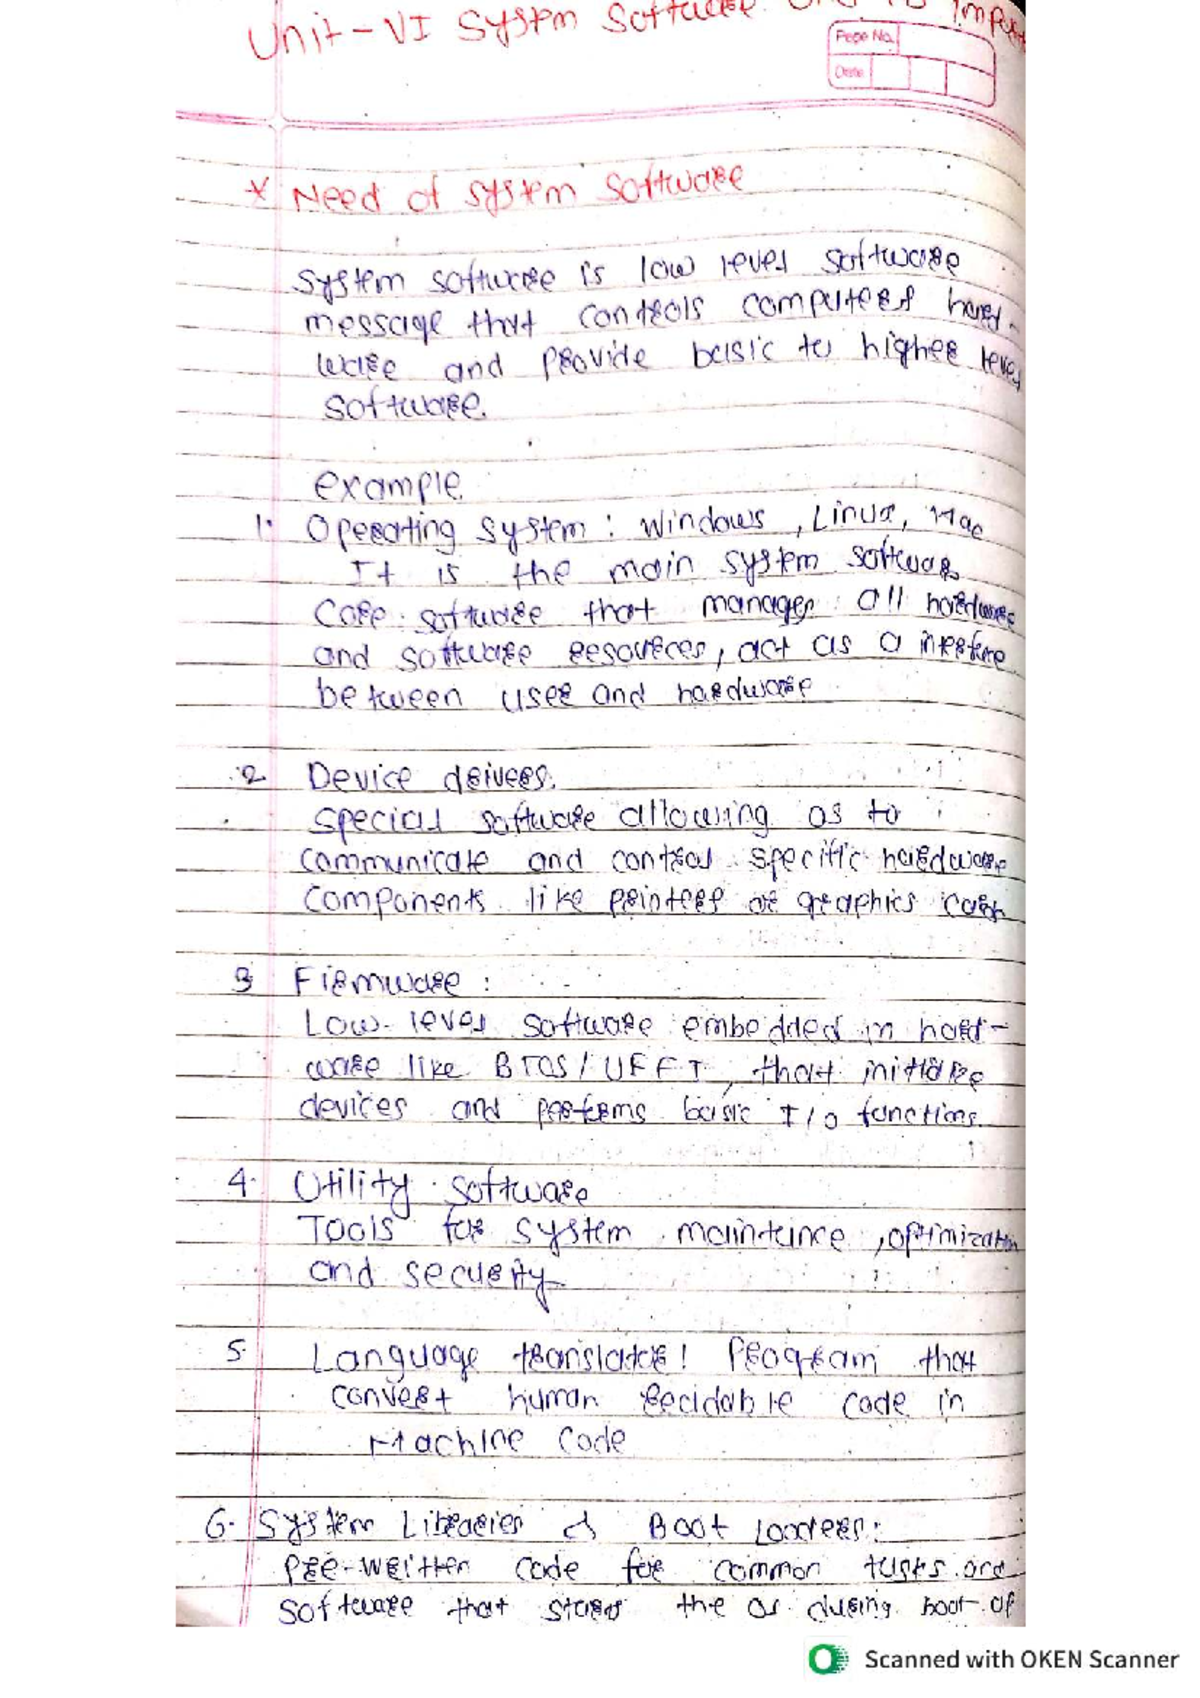 Unit-VI System Software
Page No.
Date
* Need of system Software
System software is low level software
message that controls computers hard-
ware and provide basic to higher level
software.
example.
1. Operating System : Windows, Linux, Mac
It is the main system software
Core software that manages all hardware
and software resources, act as a
between user and hardware
2 Device drivers.
Special software allowing os to
communicate and control specific hardware
components like printers or graphics
3 Firmware :
Low-level software embedded in hard-
ware like BIOS/UEFI, that
devices and performs basic I/O functions.
4. Utility software
Tools for system maintance, optimization
and security
5. Language translator: Program that
convert human code in
Machine code
6. System Libraries & Boot Loaders:
Pre-written code for common tasks and
software that starts the os during boot of
Scanned with OKEN Scanner